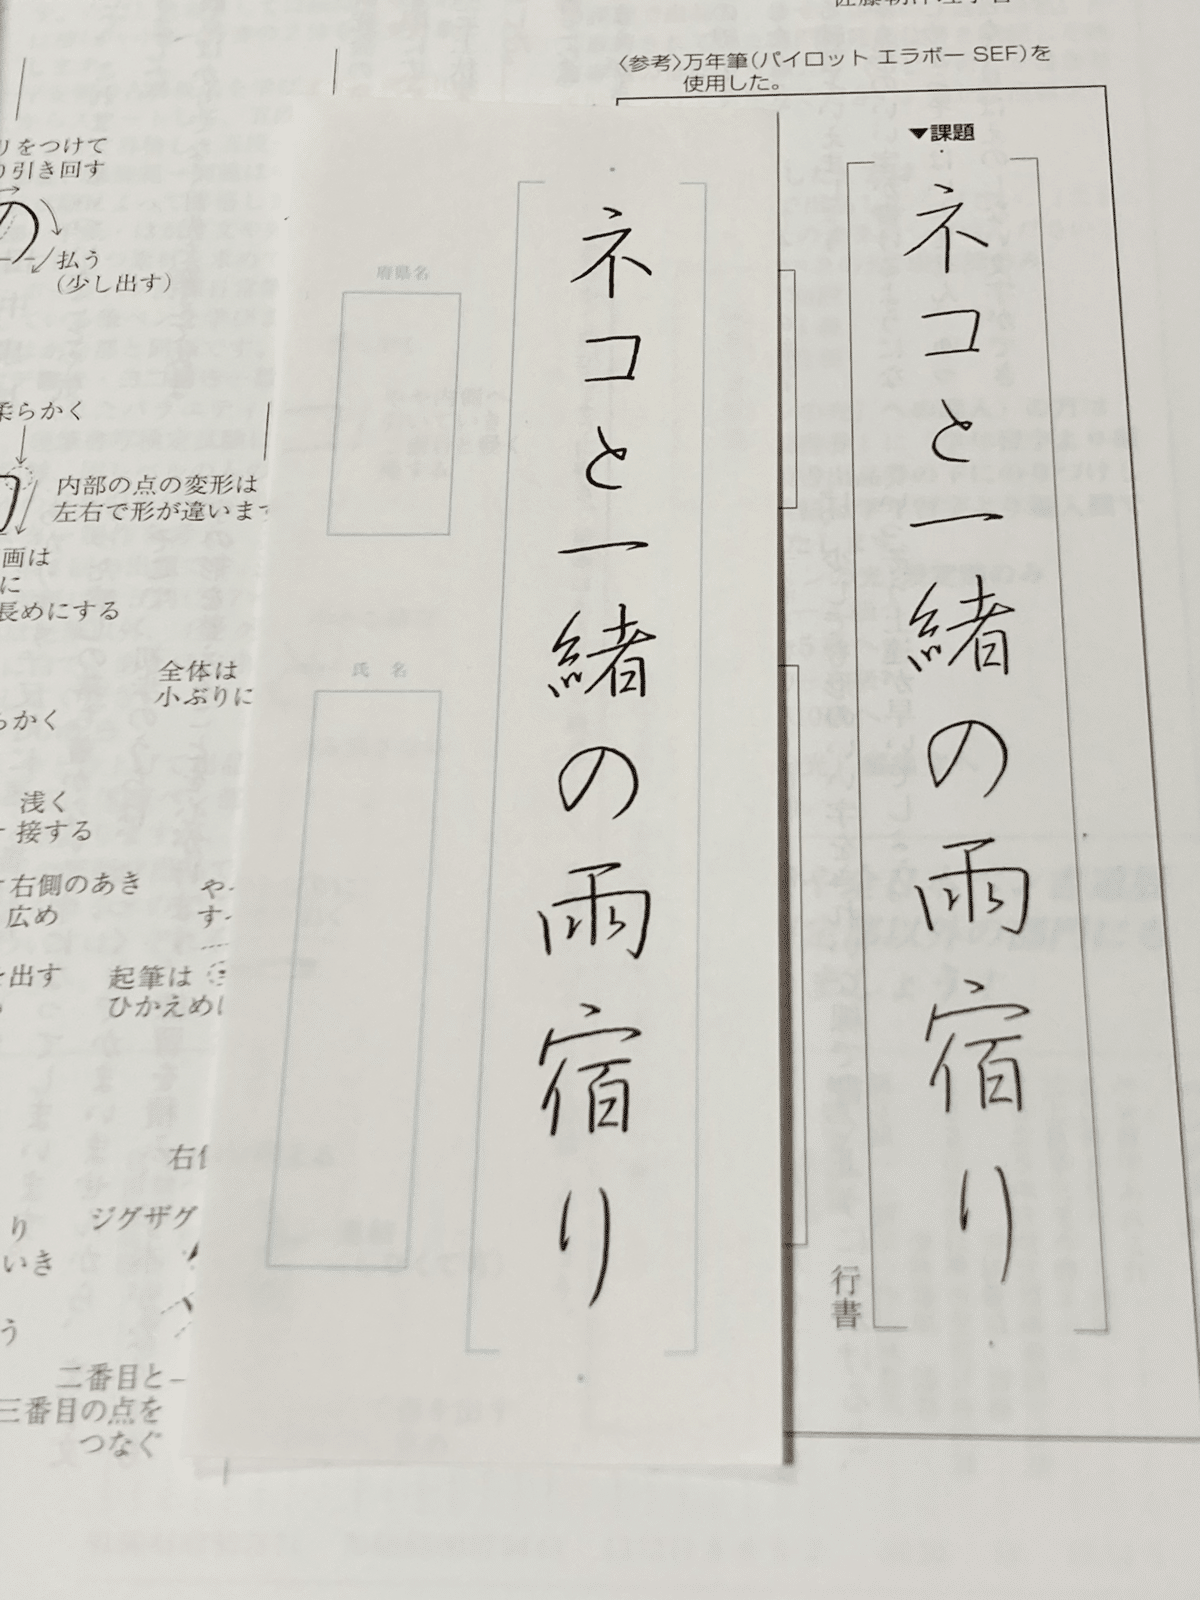 〈参考〉万年筆(パイロット エラボー SEF)を
使用した。
▼課題
ネコと一緒の雨宿り
行書
府県名
氏名
ネコと一緒の雨宿り
りをつけて
り引き回す
の
払う
(少し出す)
柔らかく
内部の点の変形は
左右で形が違います
画は
に
長めにする
全体は
小ぶりに
らかく
浅く
接する
右側のあき
広め
や
す
を出す
起筆は
ひかえめに
右側
ジグザグ
り
いき
う
二番目と
三番目の点を
つなぐ